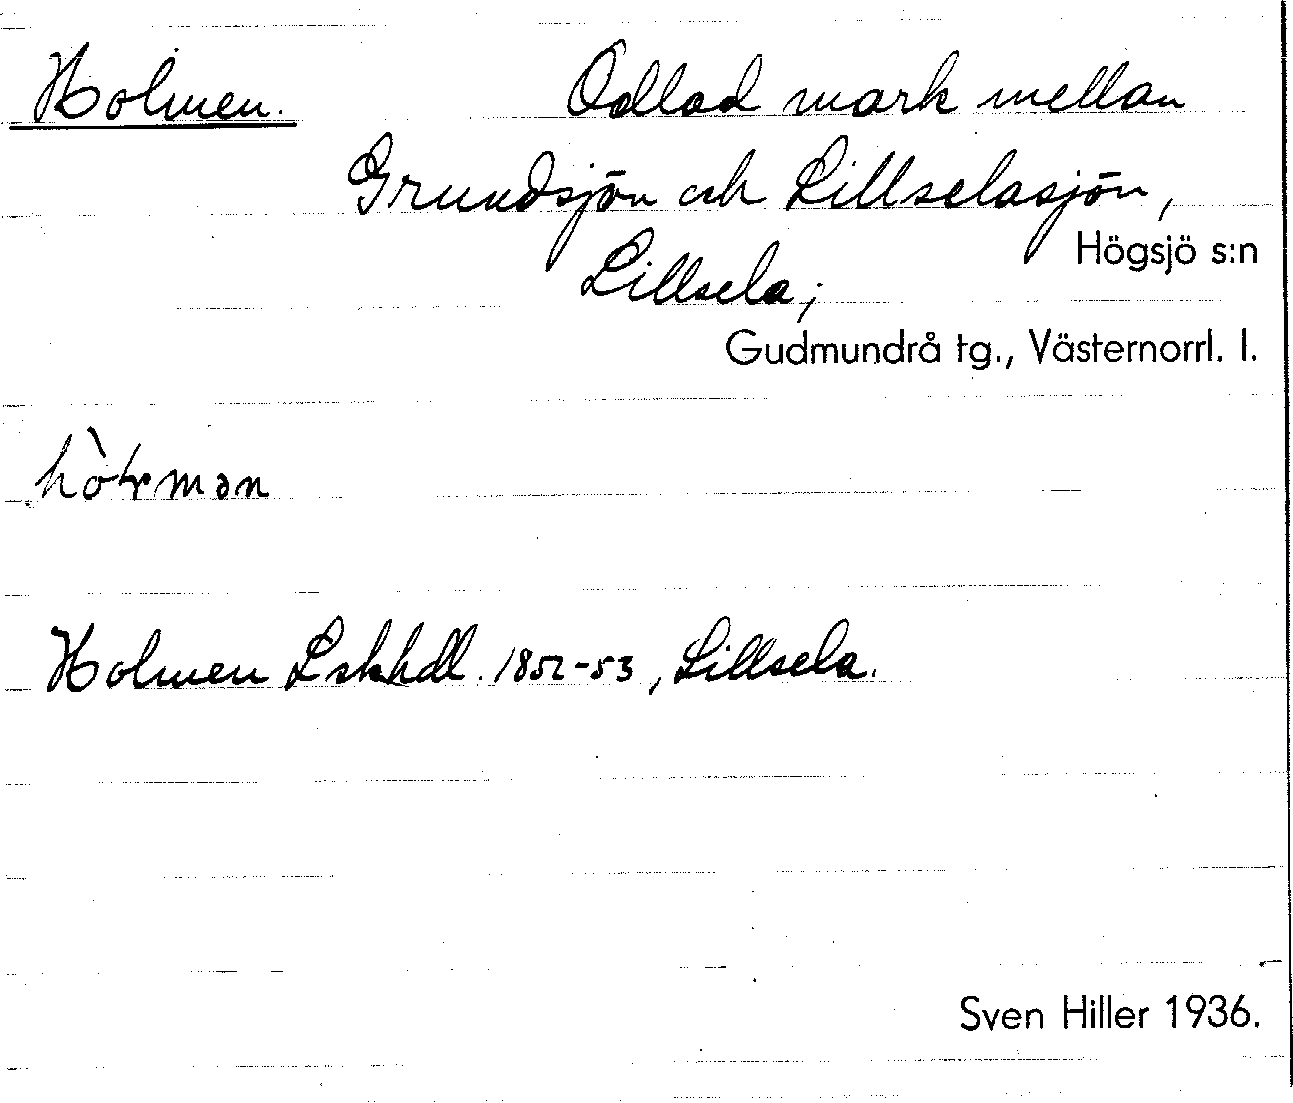 Holmen. Odlad mark mellan
Grundsjön och Lillselasjön,
Högsjö s:n
Lillsela;
Gudmundrå tg., Västernorrl. l.
Holmen Lskhdl. 1852-53, Lillsela.
Sven Hiller 1936.